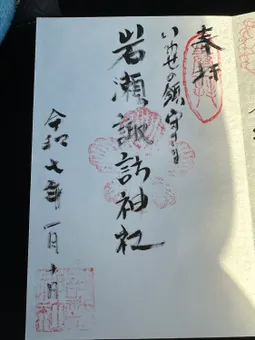 奉拝
いわせの鎮守さま
岩瀬諏訪神社
令和七年一月十日